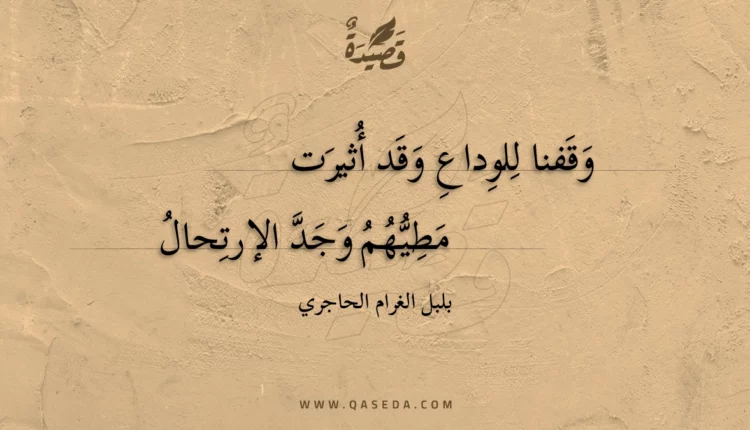 قَصِيدَةٌ
وَقَفنا لِلوِداعِ وَقَد أُثيرَت
مَطِيُّهُمُ وَجَدَّ الإرتِحالُ
بلبل الغرام الحاجري
WWW.QASEDA.COM